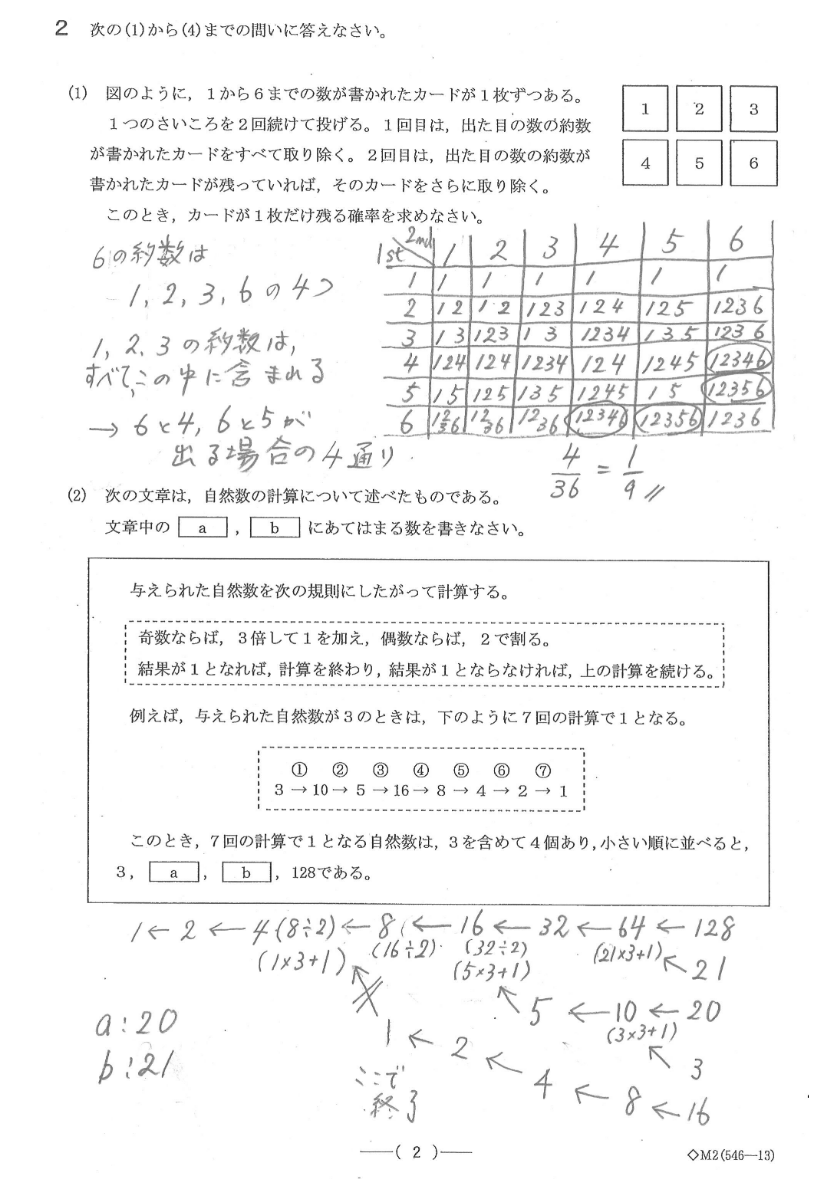 2 次の(1)から(4)までの問いに答えなさい。
(1) 図のように，1から6までの数が書かれたカードが1枚ずつある。
1つのさいころを2回続けて投げる。1回目は，出た目の数の約数
が書かれたカードをすべて取り除く。2回目は，出た目の数の約数が
書かれたカードが残っていれば，そのカードをさらに取り除く。
このとき，カードが1枚だけ残る確率を求めなさい。
1 2 3
4 5 6
6の約数は
1, 2, 3, 6の4つ
1, 2, 3の約数は,
すべて,この中に含まれる
→ 6と4, 6と5が
出る場合の4通り
1st 2nd 1 2 3 4 5 6
1 1 1 1 1 1 1
2 12 12 123 124 125 1236
3 13 123 13 1234 135 1236
4 124 124 1234 124 1245 12346
5 15 125 135 1245 15 12356
6 1236 1236 1236 12346 12356 1236
4/36 = 1/9 //
(2) 次の文章は，自然数の計算について述べたものである。
文章中の a ， b にあてはまる数を書きなさい。
与えられた自然数を次の規則にしたがって計算する。
奇数ならば，3倍して1を加え，偶数ならば，2で割る。
結果が1となれば，計算を終わり，結果が1とならなければ，上の計算を続ける。
例えば，与えられた自然数が3のときは，下のように7回の計算で1となる。
① ② ③ ④ ⑤ ⑥ ⑦
3 → 10 → 5 → 16 → 8 → 4 → 2 → 1
このとき，7回の計算で1となる自然数は，3を含めて4個あり，小さい順に並べると，
3， a ， b ，128である。
1 ← 2 ← 4 (8÷2) ← 8 ← 16 ← 32 ← 64 ← 128
(1×3+1) (16÷2) (32÷2) (21×3+1) ← 21
(5×3+1)
← 5 ← 10 ← 20
(3×3+1)
← 3
1 ← 2 ← 4 ← 8 ← 16
ここで
終了
a:20
b:21
―( 2 )―
◇M2(546―13)